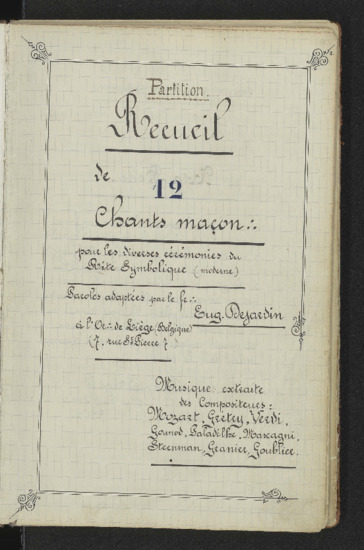 Partition.
Recueil
de
12
Chants maçon∴
pour les diverses cérémonies du
Rite Symbolique (moderne)
Paroles adaptées par le fr∴
Eug. Dejardin
à l'Or∴ de Liège (Belgique)
(7, rue St Pierre 7)
Musique extraite
des Compositeurs:
Mozart, Gretry, Verdi,
Gounod, Paladilhe, Mascagni,
Steenman, Granier, Goublier.